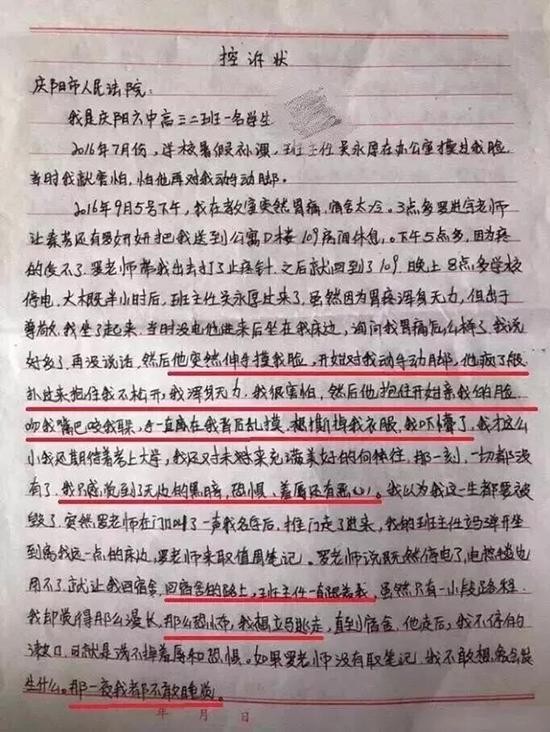 控诉状
庆阳市人民法院：
我是庆阳六中高三二班一名学生
2016年7月份，学校暑假补课，班主任吴永厚在办公室摸过我脸
当时我就害怕，怕他再对我动手动脚。
2016年9月5号下午，我在教室突然胃痛，宿舍太冷。3点多罗进宇老师
让 还有罗妍妍把我送到公寓D楼109病房休息。下午5点多，因为疼
的受不了，罗老师带我出去打了止疼针。之后就回到了109。晚上8点多学校
停电，大概半小时后，班主任吴永厚过来了，虽然因为胃疼浑身无力，但出于
尊敬，我坐了起来，当时没电他进来后坐在我床边，询问我胃痛怎么样了，我说
好多了，再没说话，然后他突然伸手摸我脸，开始对我动手动脚，他疯了般
扑过来抱住我不松开，我浑身无力，我很害怕，然后他抱住开始亲我的脸
吻我嘴巴咬我耳朵，手一直在我背后乱摸，想撕掉我衣服，我吓懵了，我才这么
小我还期待着考上大学，我还对未来充满美好的向往，那一刻，一切都没
有了，我只感觉到了无边的黑暗，恐惧，羞辱还有恶心。我以为我这一生都要被
毁了，突然罗老师在门口叫了一声我名字后，推门走了进来，我的班主任立马弹开坐
到离我远一点的床边，罗老师来取值周笔记。罗老师说既然停电了，电热毯也
用不了，就让我回宿舍，回宿舍的路上，班主任一直跟着我，虽然只有一小段路程
我却觉得那么漫长，那么恐怖，我想立马逃走，直到宿舍，他走后，我不停的
漱口，可就是洗不掉羞辱和恐惧。如果罗老师没有取笔记，我不敢想象会发
生什么。那一夜我都不敢睡觉。
年 月 日